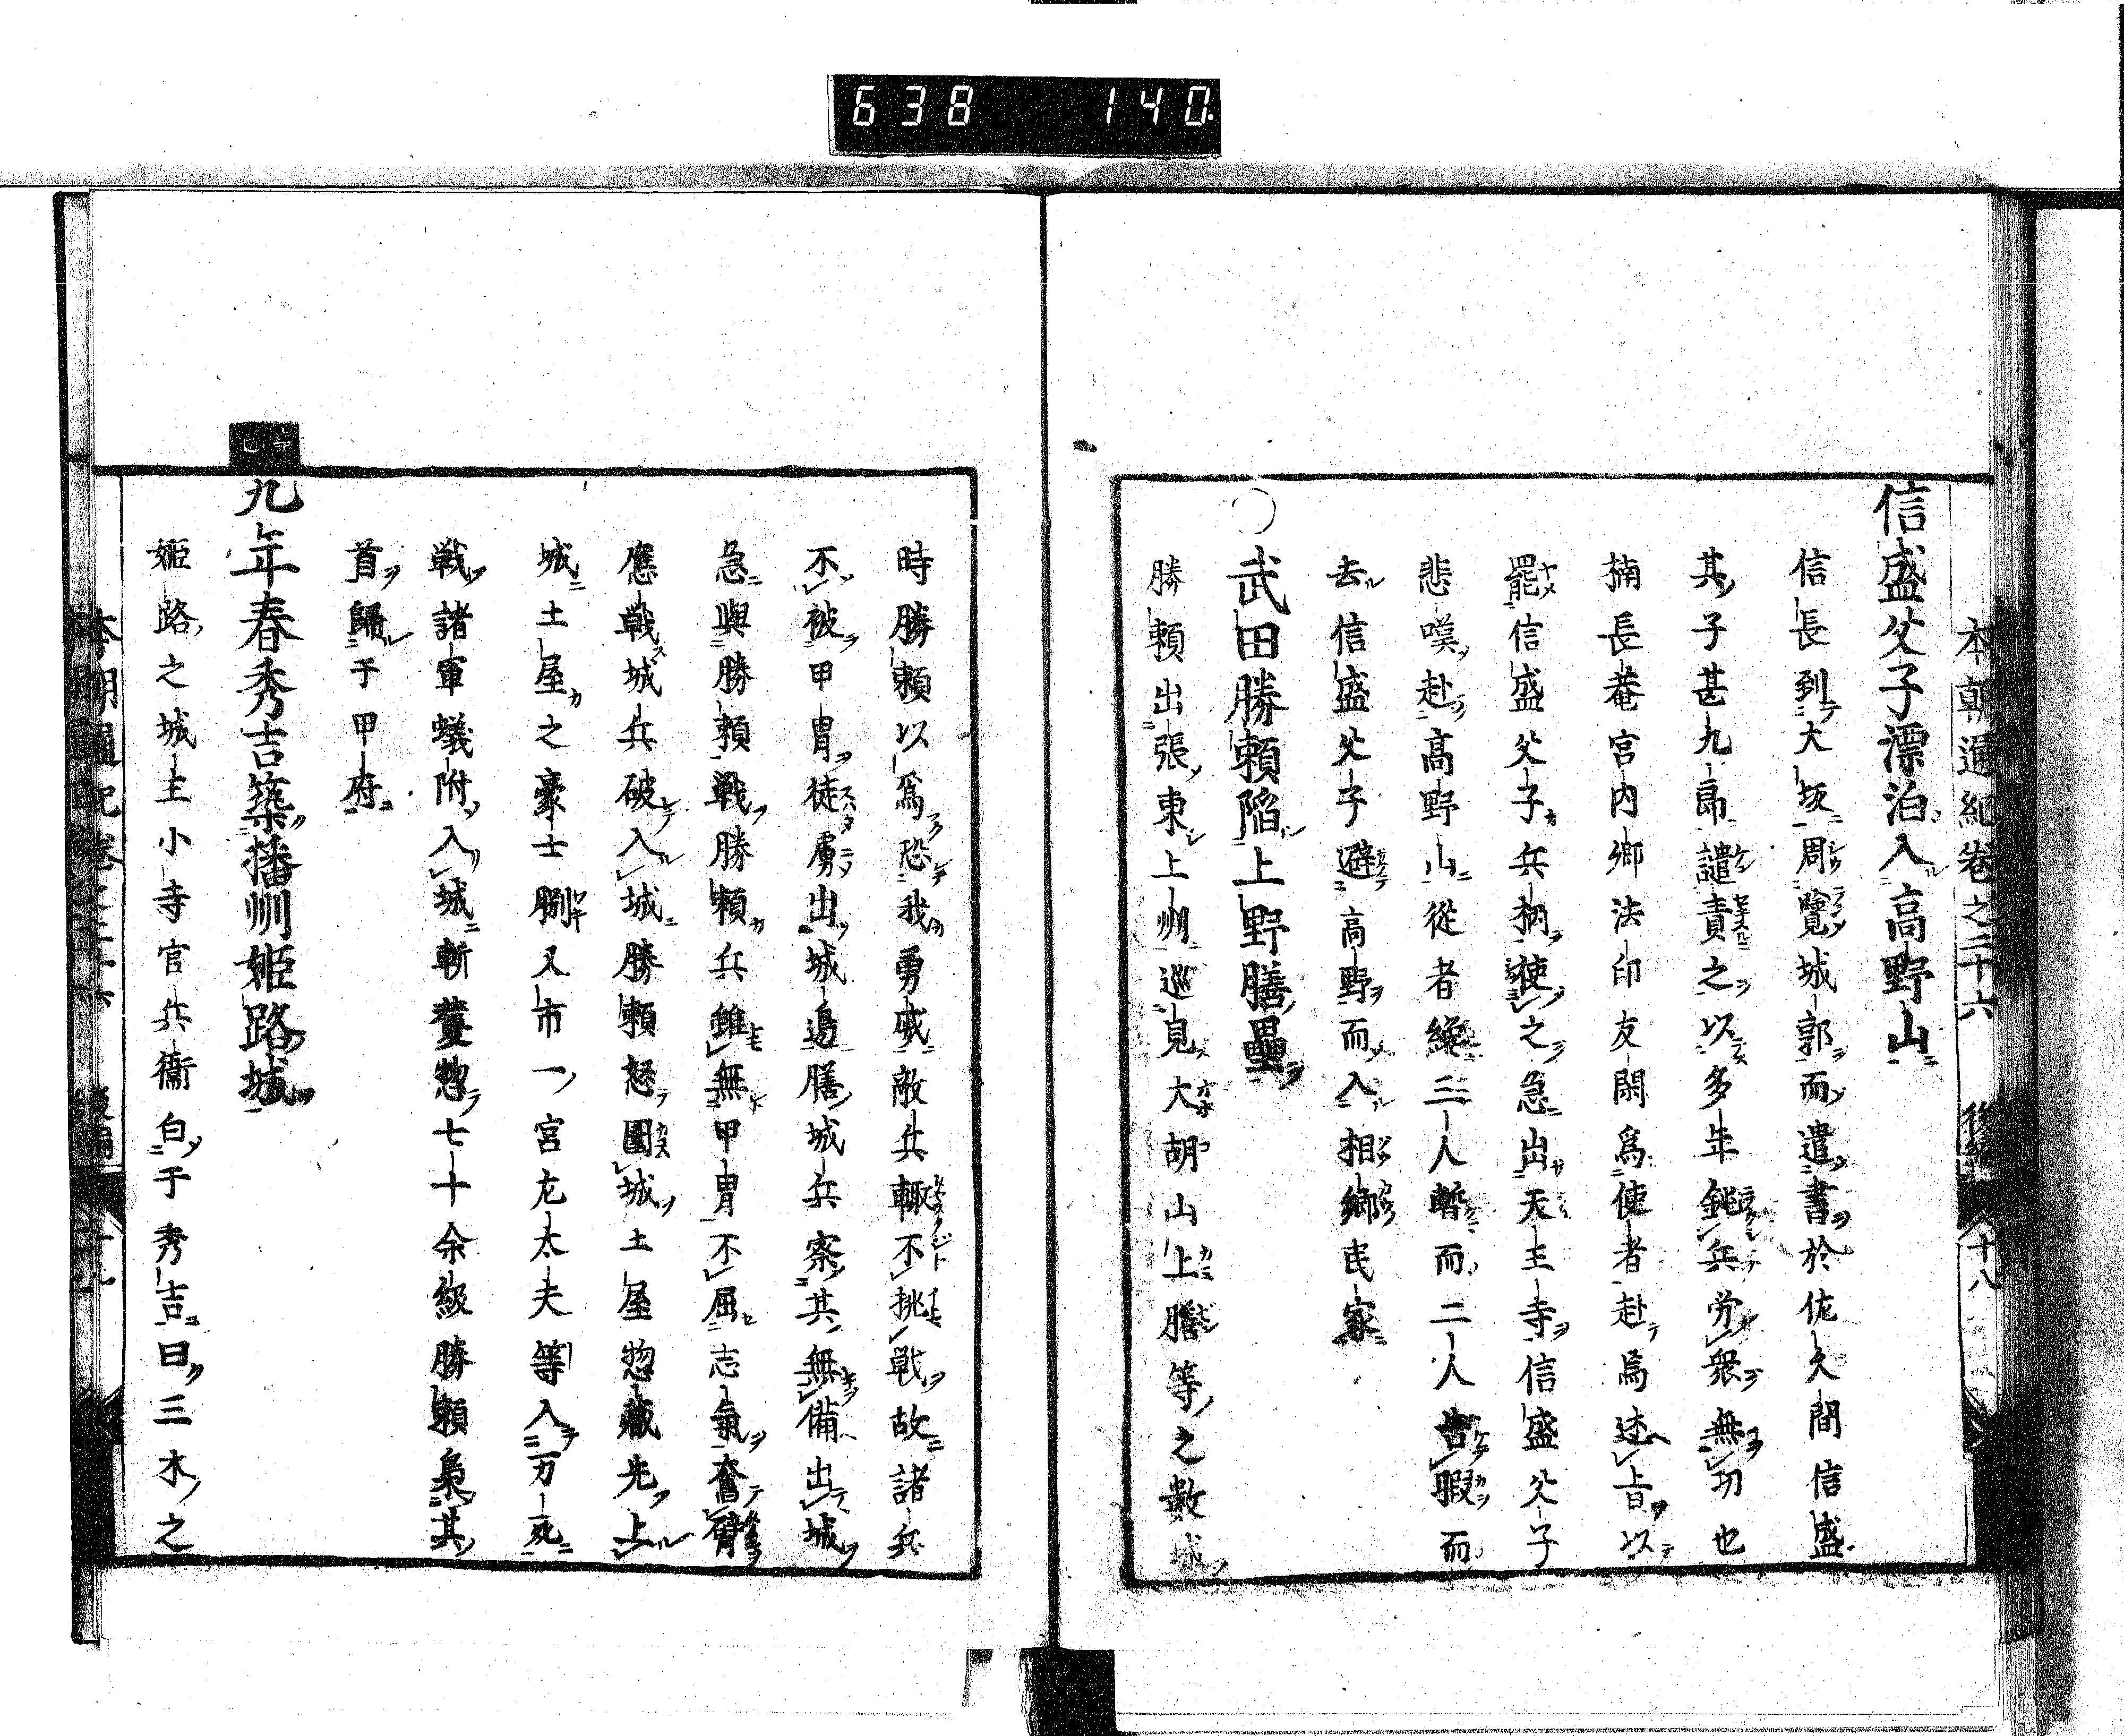 638 140
本朝通紀巻之二十六 後編 十八
信盛父子漂泊入高野山
信長到大坂周覽城郭而遣書於佐久間信盛
其子甚九郎譴責之以多年鈍兵労衆無功也
楠長菴宮内卿法印友閑爲使者赴焉述旨以
罷信盛父子兵柄使之急出天王寺信盛父子
悲嘆赴高野山從者纔三人暫而二人告暇而
去信盛父子避高野而入相郷民家
○武田勝頼陷上野膳壘
勝頼出張東上州巡見大胡山上膳等之數城
時勝頼以爲恐我勇威敵兵輙不挑戦故諸兵
不被甲冑徒膚出城邉膳城兵察其無備出城
急與勝頼戦勝頼兵雖無甲冑不屈志氣奮臂
應戦城兵破入城勝頼怒圍城土屋惣藏先上
城土屋之豪士脇又市一宮左太夫等入万死
戦諸軍蟻附入城斬獲惣七十余級勝頼梟其
首歸于甲府
辛巳
九年春秀吉築播州姫路城
姫路之城主小寺官兵衞白于秀吉曰三木之